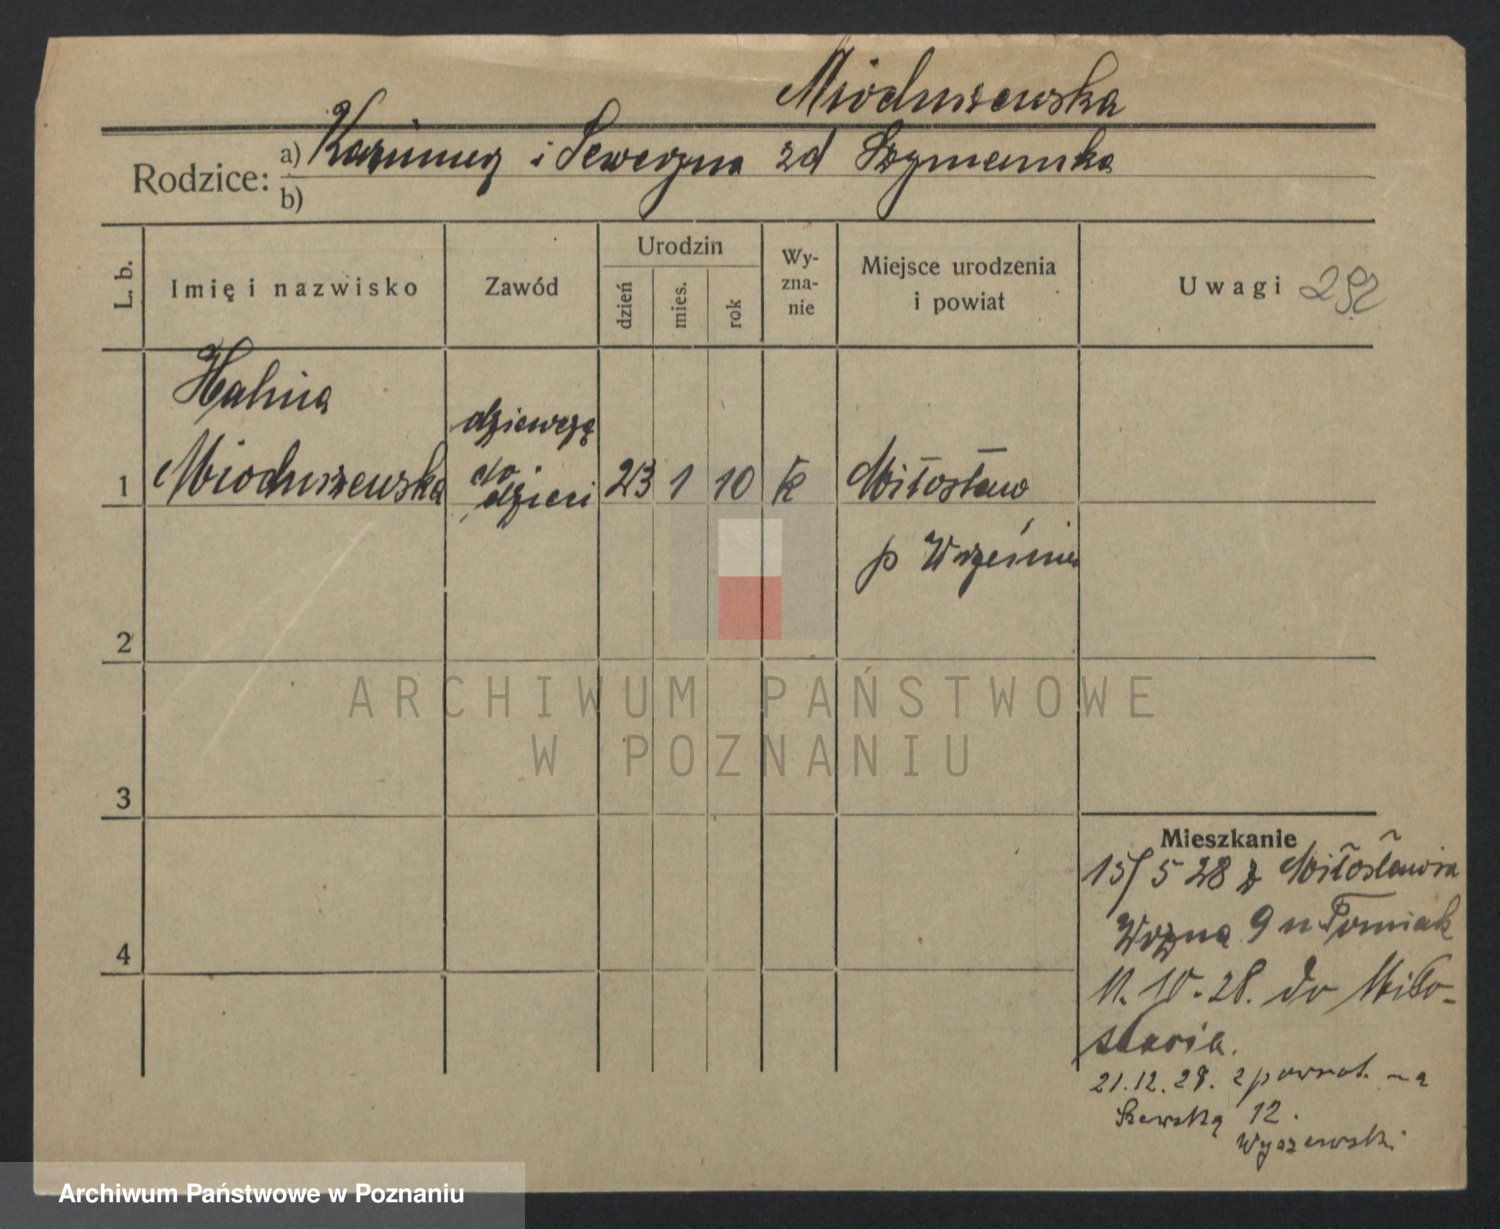 Mioduszewska
Rodzice: a) Kazimierz i Seweryna zd Szymańska
b)
L. b. Imię i nazwisko Zawód Urodzin dzień mies. rok Wy-zna-nie Miejsce urodzenia i powiat Uwagi 292
Halina
Mioduszewska
dziewczę
do
dzieci
1 23 1 10 k Miłosław
p Września
2
3
4
ARCHIWUM PAŃSTWOWE
W POZNANIU
Mieszkanie
15/5 28 z Miłosławia
Woźna 9 u Tomiak
11.10.28. do Miło-
sławia.
21.12.28. z powrot. na
Szewską 12.
Wyszewski
Archiwum Państwowe w Poznaniu